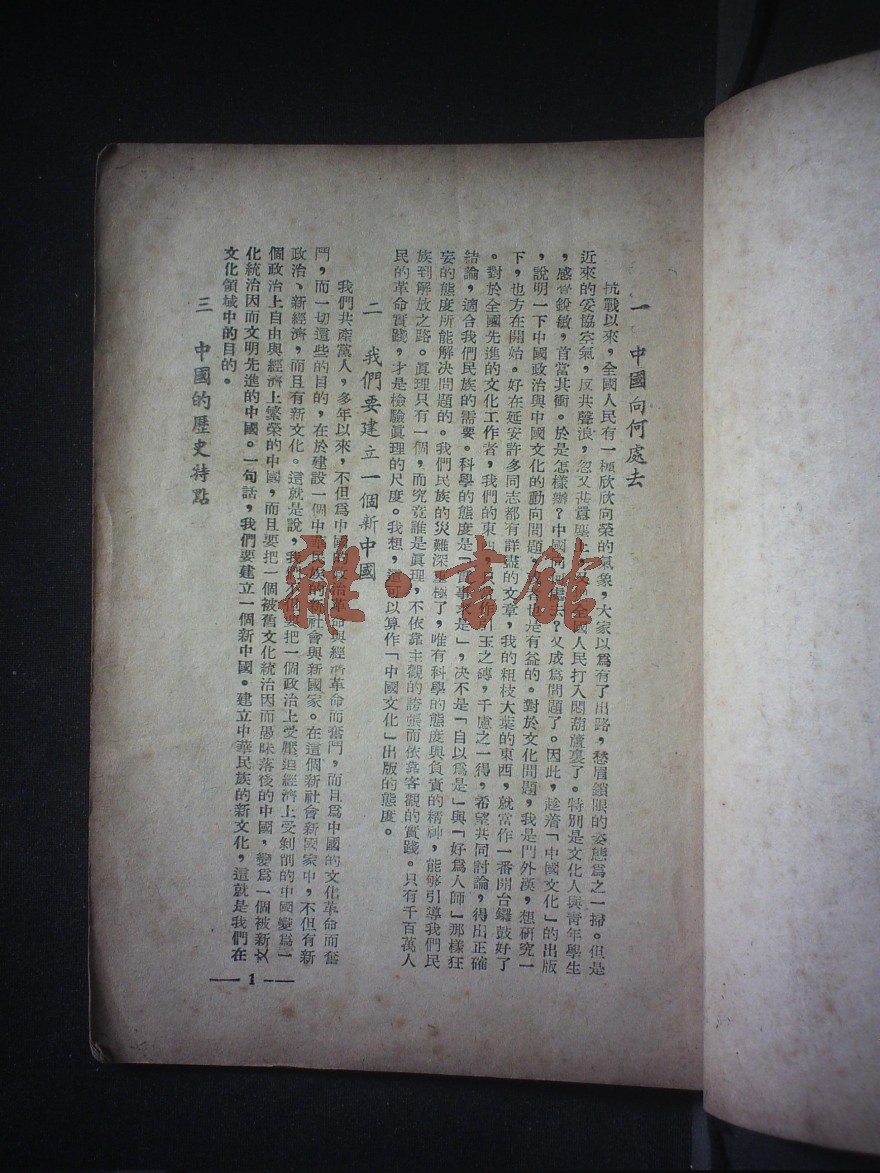 一 中國向何處去
抗戰以來，全國人民有一種欣欣向榮的氣象，大家以爲有了出路，愁眉鎖眼的姿態爲之一掃。但是
近來的妥協空氣，反共聲浪，忽又甚囂塵上，又把全國人民打入悶葫蘆裏了。特別是文化人與青年學生
，感覺銳敏，首當其衝。於是怎樣辦？中國向何處去？又成爲問題了。因此，趁着「中國文化」的出版
，說明一下中國政治與中國文化的動向問題，或者也是有益的。對於文化問題，我是門外漢，想研究一
下，也方在開始。好在延安許多同志都有詳盡的文章，我的粗枝大葉的東西，就當作一番開台鑼鼓好了
。對於全國先進的文化工作者，我們的東西，只當作引玉之磚，千慮之一得，希望共同討論，得出正確
結論，適合我們民族的需要。科學的態度是「實事求是」，決不是「自以爲是」與「好爲人師」那樣狂
妄的態度所能解決問題的。我們民族的災難深重極了，唯有科學的態度與負責的精神，能够引導我們民
族到解放之路。眞理只有一個，而究竟誰是眞理，不依靠主觀的誇張而依靠客觀的實踐。只有千百萬人
民的革命實踐，才是檢驗眞理的尺度。我想，還可以算作「中國文化」出版的態度。
二 我們要建立一個新中國
我們共產黨人，多年以來，不但爲中國的政治革命與經濟革命而奮鬥，而且爲中國的文化革命而奮
鬥，而一切這些的目的，在於建設一個中華民族的新社會與新國家。在這個新社會新國家中，不但有新
政治、新經濟，而且有新文化。這就是說，我們不但要把一個政治上受壓迫經濟上受剝削的中國變爲一
個政治上自由與經濟上繁榮的中國，而且要把一個被舊文化統治因而愚昧落後的中國，變爲一個被新文
化統治因而文明先進的中國。一句話，我們要建立一個新中國。建立中華民族的新文化，這就是我們在
文化領域中的目的。
三 中國的歷史特點
— 1 —
雜·書館